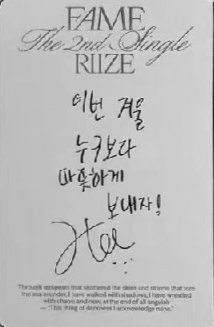 FAME
The 2nd Single
RIIZE
이번 겨울
누구보다
따뜻하게
보내자!
Through tempests that shattered the skies and storms that tore
the sea asunder, I have walked with shadows, I have wrestled
with chaos, and now, at the end of all anguish
— "This thing of darkness I acknowledge mine."